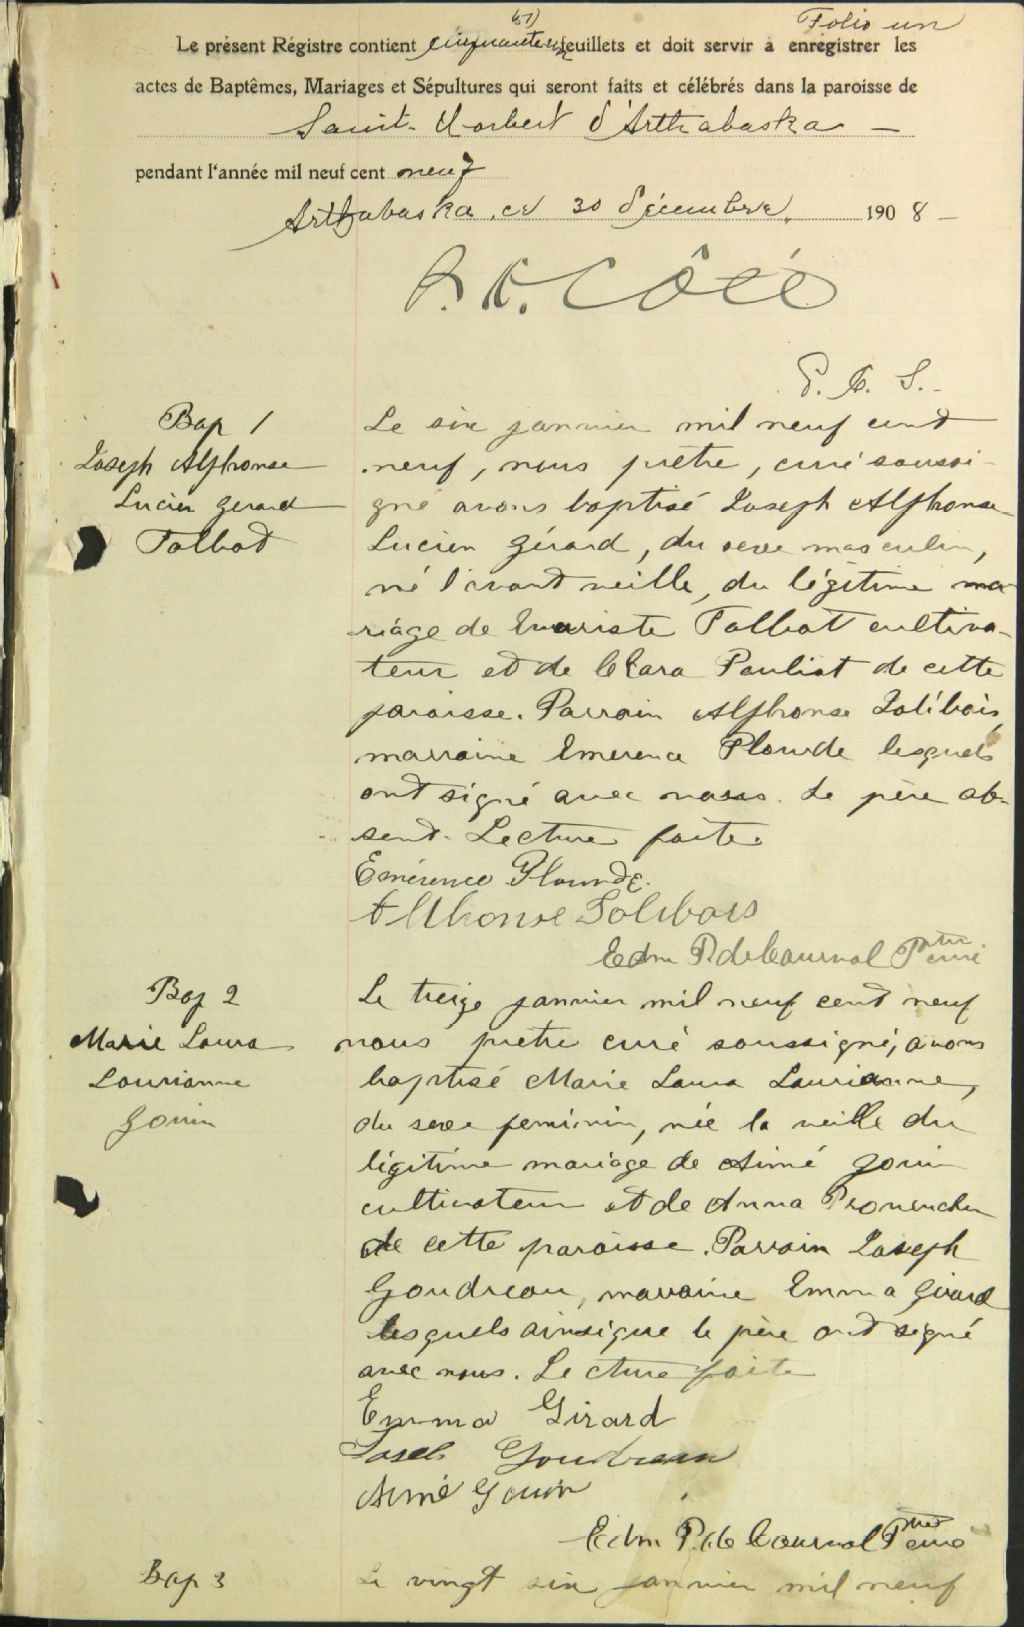 Folio un
(51)
Le présent Régistre contient cinquante un feuillets et doit servir à enregistrer les
actes de Baptêmes, Mariages et Sépultures qui seront faits et célébrés dans la paroisse de
Saint-Norbert d'Arthabaska —
pendant l'année mil neuf cent neuf
Arthabaska, ce 30 décembre, 1908 —
Côté
P. C. S.
Bap 1
Joseph Alphonse
Lucien Gerard
Talbot
Le six janvier mil neuf cent
neuf, nous prêtre, curé soussi-
gné avons baptisé Joseph Alphonse
Lucien Gérard, du sexe masculin,
né l'avant veille, du légitime ma-
riage de Evariste Talbot cultiva-
teur et de Clara Pauliot de cette
paroisse. Parrain Alphonse Jolibois,
marraine Emerence Plourde lesquels
ont signé avec nous. Le père ab-
sent. Lecture faite.
Emérence Plourde.
Alphonse Jolibois
Edm P. de Courval Ptre curé
Bap 2
Marie Laura
Laurianne
Gouin
Le treize janvier mil neuf cent neuf
nous prêtre curé soussigné, avons
baptisé Marie Laura Laurianne,
du sexe feminin, née la veille du
légitime mariage de Aimé Gouin
cultivateur et de Anna Provencher
de cette paroisse. Parrain Joseph
Goudreau, marraine Emma Girard
lesquels ainsique le père ont signé
avec nous. Lecture faite
Emma Girard
Joseph Goudreau
Aimé Gouin
Edm P. de Courval Ptre curé
Bap 3
Le vingt six janvier mil neuf